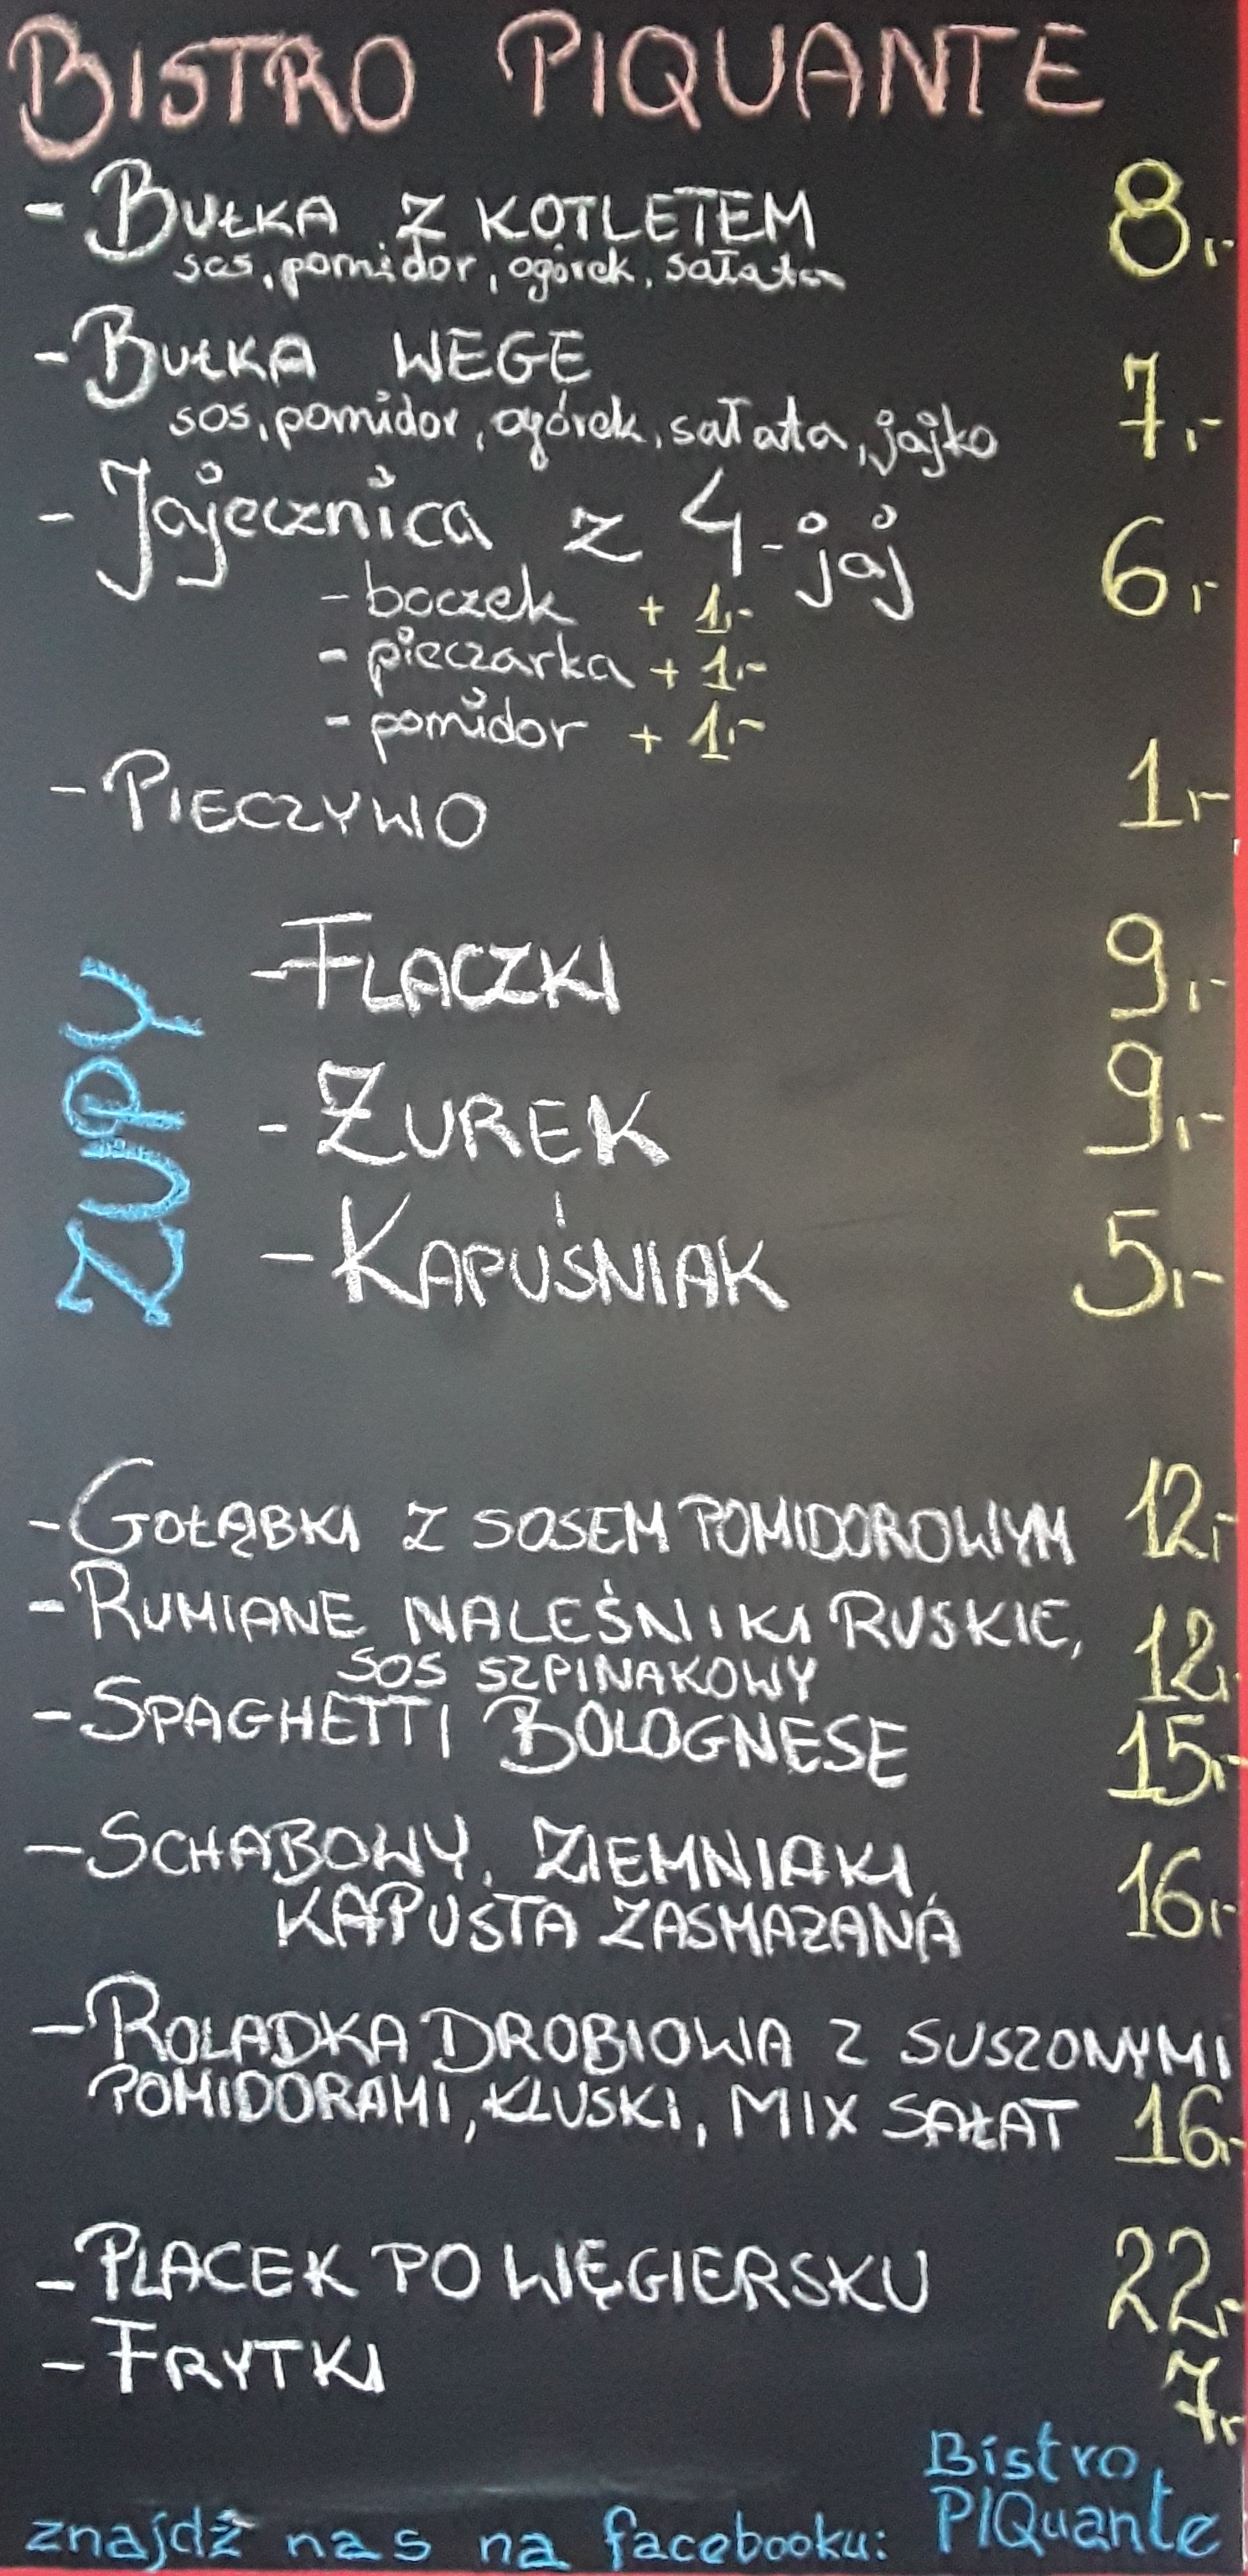 BISTRO PIQUANTE
- BUŁKA Z KOTLETEM 8,-
sos, pomidor, ogórek, sałata
- BUŁKA WEGE 7,-
sos, pomidor, ogórek, sałata, jajko
- Jajecznica z 4-jaj 6,-
- boczek + 1,-
- pieczarka + 1,-
- pomidor + 1,-
- PIECZYWO 1,-
ZUPY
- FLACZKI 9,-
- ŻUREK 9,-
- KAPUŚNIAK 5,-
- GOŁĄBKI Z SOSEM POMIDOROWYM 12,-
- RUMIANE NALEŚNIKI RUSKIE, 12,-
SOS SZPINAKOWY
- SPAGHETTI BOLOGNESE 15,-
- SCHABOWY, ZIEMNIAKI, 16,-
KAPUSTA ZASMAŻANA
- ROLADKA DROBIOWA Z SUSZONYMI
POMIDORAMI, KLUSKI, MIX SAŁAT 16,-
- PLACEK PO WĘGIERSKU 22,-
- FRYTKI 7,-
znajdź nas na facebooku: Bistro
PIQuante